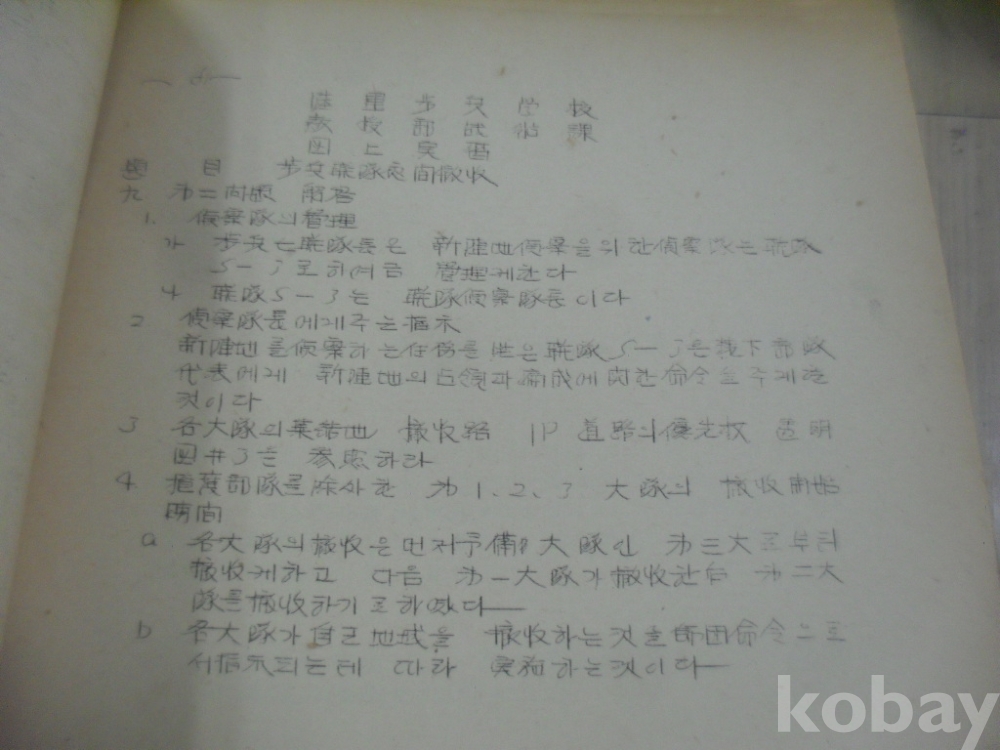 — 61 —
陸軍步兵学校
敎授部戰術課
図上実習
題 目 步兵聯隊夜間撤收
九 才二問題 解答
1. 偵察隊의 管理
가 步兵七聯隊長은 新陣地偵察을 위한 偵察隊는 聯隊
S-3로 하여금 管理케한다
나 聯隊 S-3는 聯隊偵察隊長이다
2 偵察隊長에게 주는 指示
新陣地를 偵察하는 任務를 받은 聯隊 S-3는 隷下部隊
代表에게 新陣地의 占領과 編成에 関한 命令을 주게 될
것이다
3 各大隊의 集結地 撤收路 IP 道路의 優先权 透明
図 #3을 参照하라
4 掩護部隊를 除外한 才 1、2、3 大隊의 撤收開始
時间
a 各大隊의 撤收은 먼저 予備 大隊인 才三大로부터
撤收케하고 다음 才一大隊가 撤收한后 才二大
隊를 撤收하기로 하였다—
b 各大隊가 自己地域을 撤收하는것을 断囯命令으로
서 指示되는데 따라 実施하는것이다—
kobay